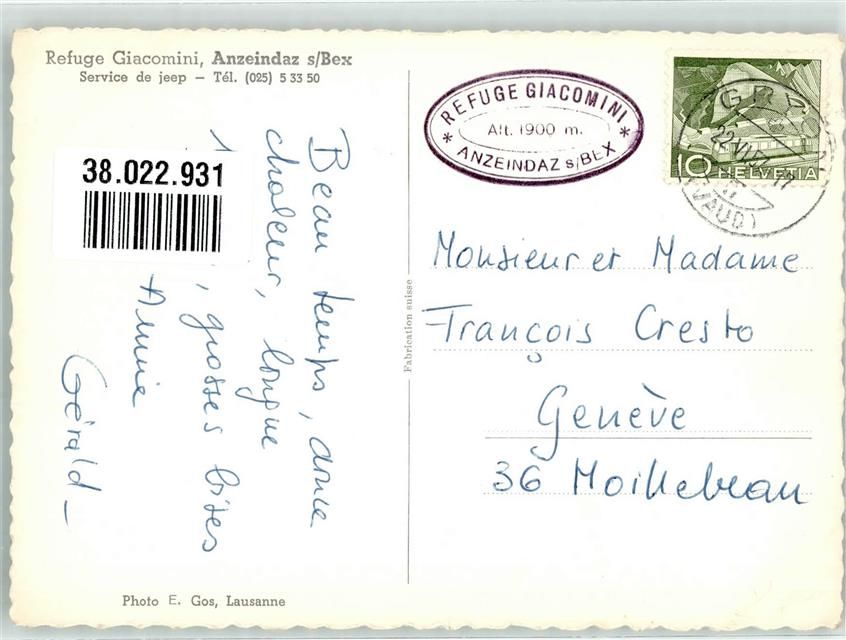 Refuge Giacomini, Anzeindaz s/Bex
Service de jeep – Tél. (025) 5 33 50
38.022.931
Beau temps, douce
chaleur, longue
, grosses bises
Annie
Gérald –
Photo E. Gos, Lausanne
Fabrication suisse
REFUGE GIACOMINI
Alt. 1900 m.
* ANZEINDAZ s/BEX *
10 HELVETIA
(VAUD)
Monsieur et Madame
François Cresto
Genève
36 Moillebeau